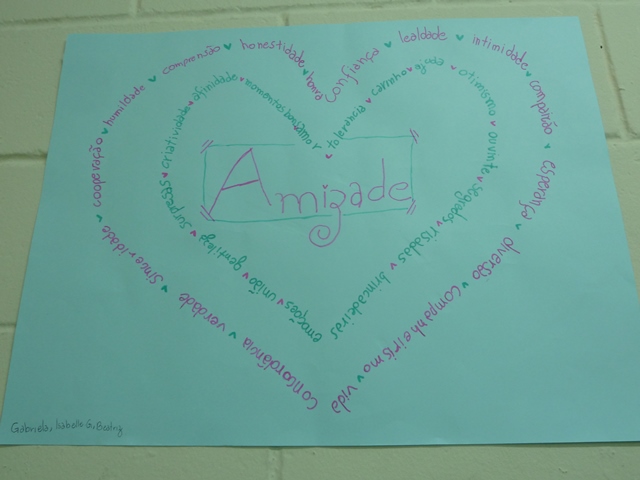 confiança ♥ lealdade ♥ intimidade ♥ compaixão ♥ esperança ♥ diversão ♥ companheirismo ♥ vida
concordância ♥ verdade ♥ sinceridade ♥ cooperação ♥ humildade ♥ comprensão ♥ honestidade ♥ honra
tolerancia ♥ carinho ♥ ajuda ♥ otimismo ♥ ouvinte ♥ segredos ♥ risadas ♥ brincadeiras
emoções ♥ união ♥ gentileza ♥ surpresas ♥ criatividade ♥ afinidade ♥ momentos bons ♥ amor
Amizade
Gabriela, Isabelle G, Beatriz